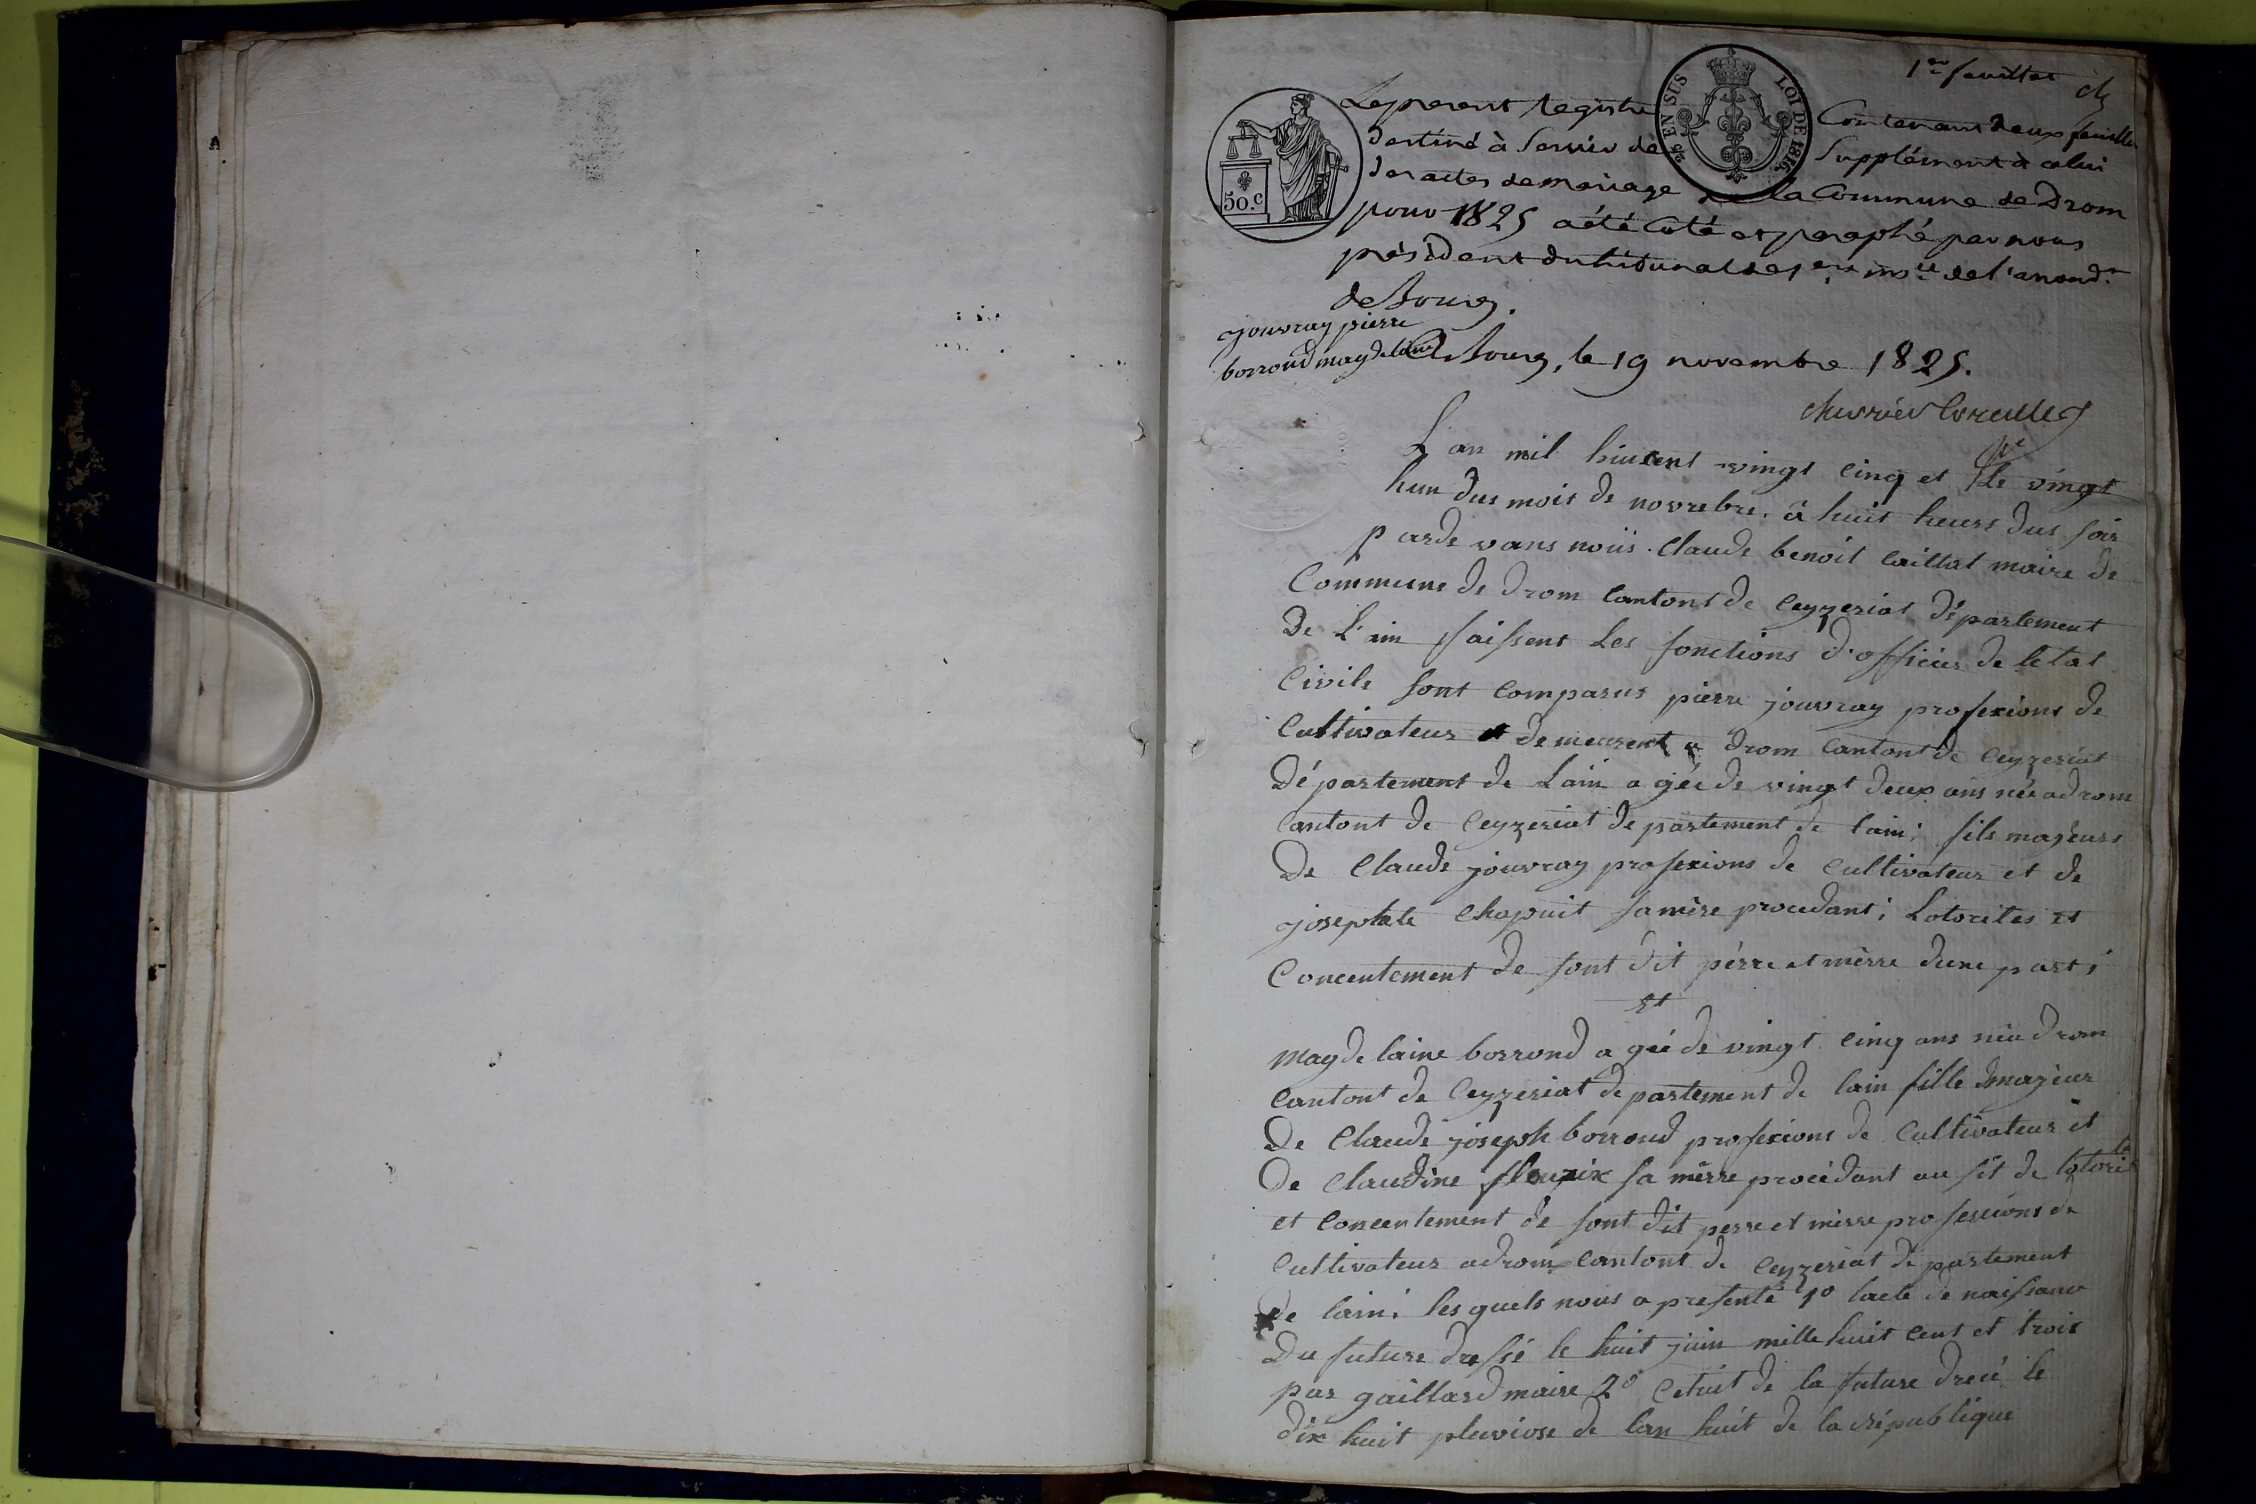 1er feuillet
Le present Registre Contenant deux feuilles
destiné à Servir de Supplément à celui
des actes de mariage de la Commune de Drom
pour 1825 a été Coté et paraphé par nous
président du tribunal de 1ere insce de l'arrondt
de Bourg.
A Bourg, le 19 novembre 1825.
50.c
2/5 EN SUS LOI DE 1816
jouvray pierre
borroud magdelaine
L'an mil huicent vingt cinq et Le vingt
hun dus mois de novrebre, à huit heurs dus soir
parde vans noüs. Claude benoit caillat maire de
Commune de drom Cantont de Ceyzeriat département
De L'ain faissent Les fonctions d'officier de letat
Civile sont Comparus pierre jouvray profexions de
Cultivateur et demeurent a drom Cantont de Ceyzeriat
Département de Lain a géé de vingt deux ans née a drom
Cantont de Ceyzeriat de partement de lain; fils majeurs
De Claude jouvray profexions de Cultivateur et de
josephate Chapuit sa mère procedant; Lotorites et
Concentement de sont dit pérre et mérre dune part;
et
magdelaine borrond a géé de vingt cinq ans née drom
Cantont de Ceyzeriat de partement de lain fille majeur
De Claude joseph borroud profexions de Cultivateur et
De Claudine sa mérre procédant au fit de lotorité
et Concentement de sont dit perre et merre profescions de
Cultivateur a drom Cantont de Ceyzeriat de partement
de lain; les quels nous a presenté 1º lacte de naissance
Du future dressé le huit juin mille huit cent et trois
par gaillard maire 2º Celuit de la future drecé le
dix huit pluviose de lan huit de la république